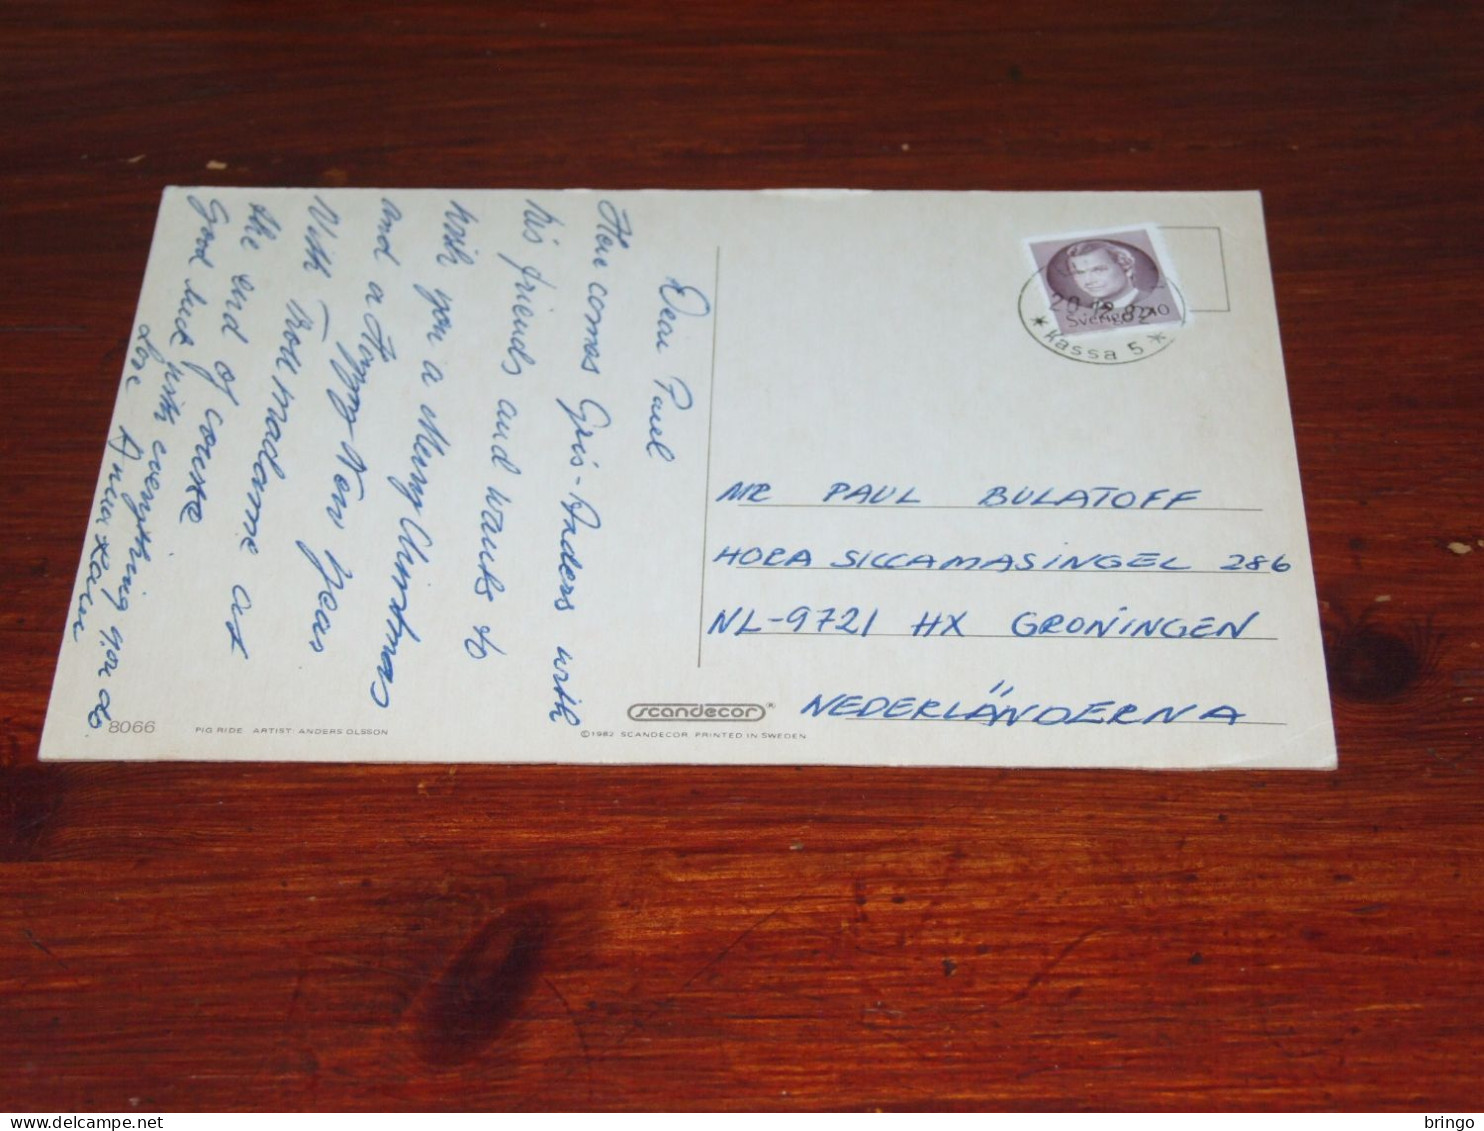 Dear Paul
Here comes Gris-Anders with
his friends and wants to
wish you a Merry Christmas
and a Happy New Year
With Troll madame at
the end of course
Good luck with everything you do
Love
SVERIGE 240
20.12.82
* Kassa 5 *
MR PAUL BULATOFF
HORA SICCAMASINGEL 286
NL-9721 HX GRONINGEN
NEDERLÄNDERNA
8066
PIG RIDE ARTIST: ANDERS OLSSON
scandecor®
©1982 SCANDECOR PRINTED IN SWEDEN
delcampe.net
bringo